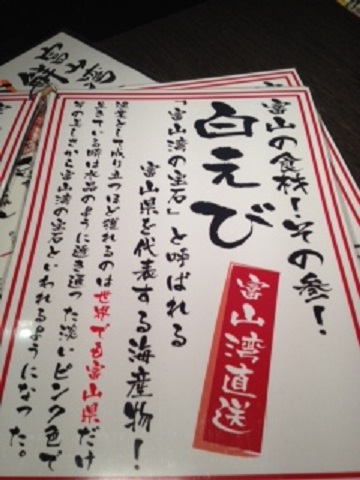 富山の食材！その参！
白えび
富山湾直送
「富山湾の宝石」と呼ばれる
富山県を代表する海産物！
漁業として成り立つほど獲れるのは世界でも富山県だけ
生きている時は水晶のように透き通った淡いピンク色で
その美しさから富山湾の宝石といわれるようになった。
富山湾